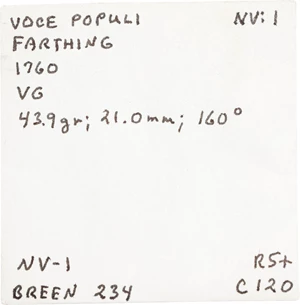 VOCE POPULI NV: 1
FARTHING
1760
VG
43.9gr; 21.0mm; 160°
NV-1 R5+
BREEN 234 C120